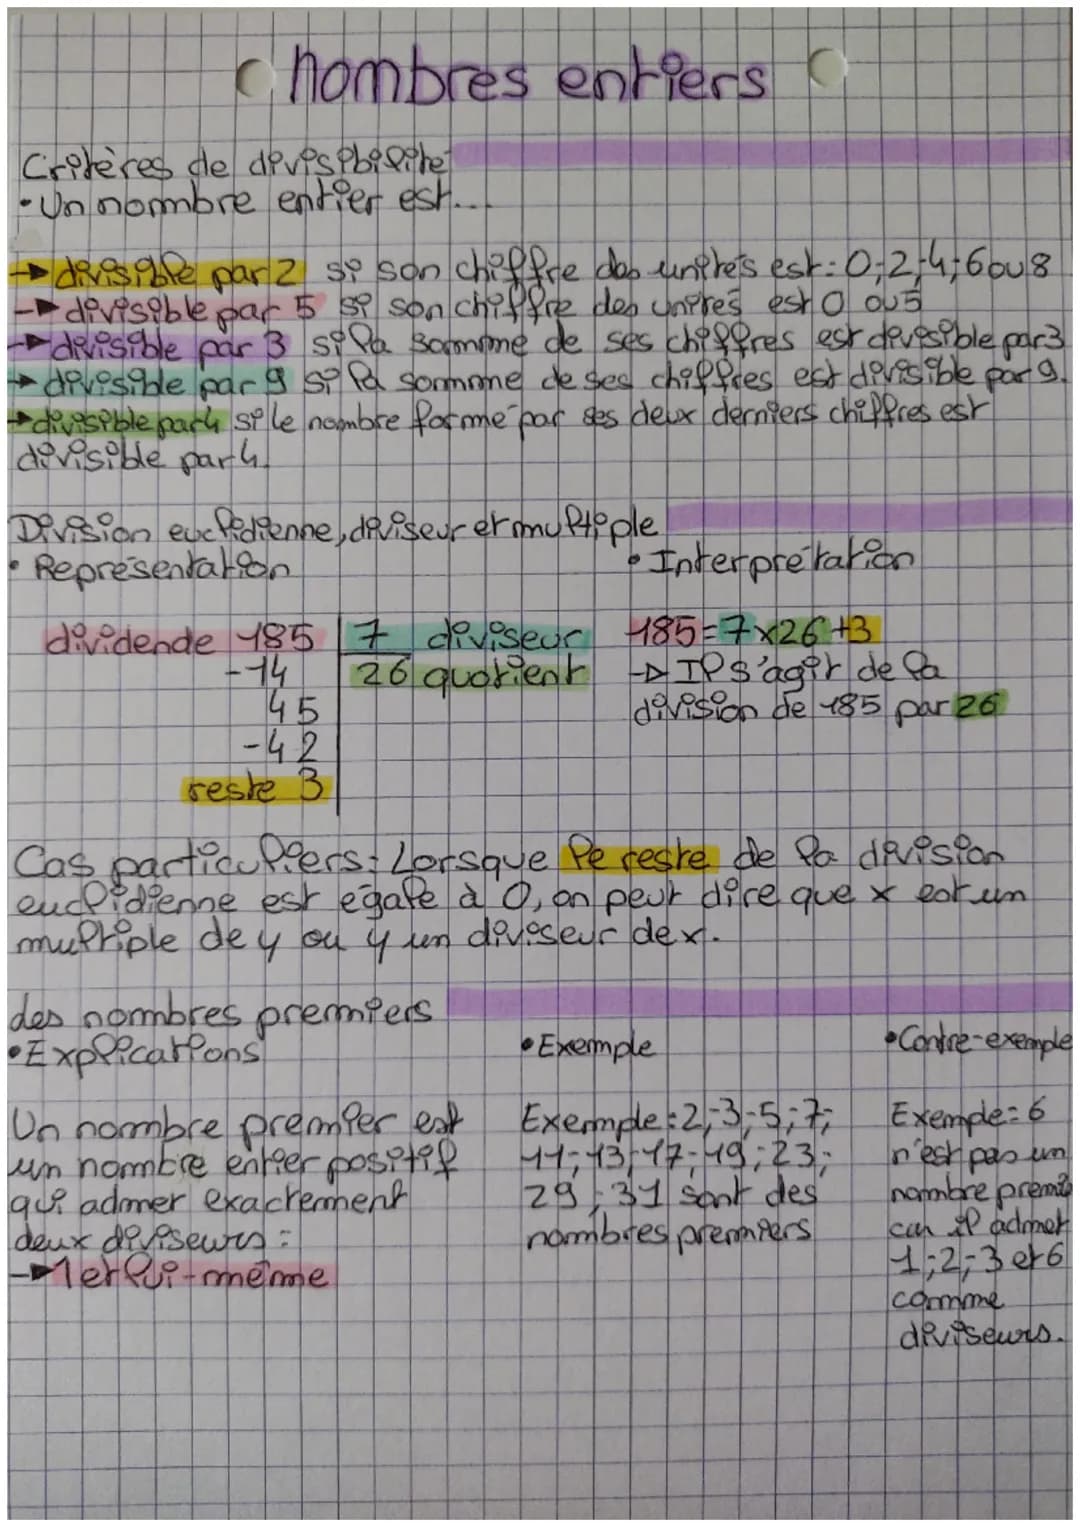 nombres entiers
Critères de divisibilité
• Un nombre entier est...
→ divisible par 2 si son chiffre des unités est: 0;2;4;6 ou 8
→ divisible par 5 si son chiffre des unités est 0 ou 5
→ divisible par 3 si la somme de ses chiffres est divisible par 3
→ divisible par 9 si la somme de ses chiffres est divisible par 9.
→ divisible par 4 si le nombre formé par ses deux derniers chiffres est
divisible par 4.
Division euclidienne, diviseur et multiple
• Représentation
• Interprétation
dividende 185 7 diviseur
-14 26 quotient
45
-42
reste 3
185=7×26+3
→ Il s'agit de la
division de 185 par 26
Cas particuliers: Lorsque le reste de la division
euclidienne est égale à 0, on peut dire que x est un
multiple de y ou y un diviseur de x.
des nombres premiers
• Explications
Un nombre premier est
un nombre entier positif
qui admet exactement
deux diviseurs:
→ 1 et lui-même
• Exemple
Exemple: 2;3;5;7;
11;13;17;19;23;
29;31 sont des
nombres premiers
• Contre-exemple
Exemple: 6
n'est pas un
nombre premi
car il admet
1;2;3 et 6
comme
diviseurs.